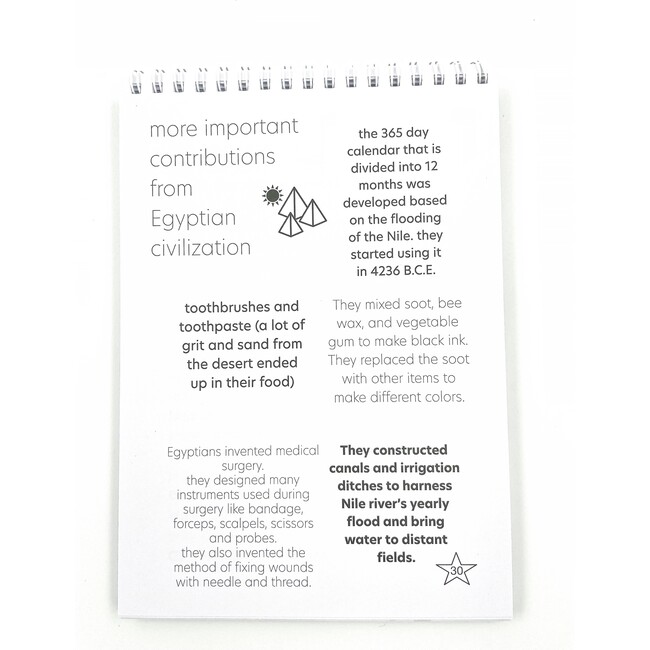 more important
contributions
from
Egyptian
civilization
the 365 day
calendar that is
divided into 12
months was
developed based
on the flooding
of the Nile. they
started using it
in 4236 B.C.E.
toothbrushes and
toothpaste (a lot of
grit and sand from
the desert ended
up in their food)
They mixed soot, bee
wax, and vegetable
gum to make black ink.
They replaced the soot
with other items to
make different colors.
Egyptians invented medical
surgery.
they designed many
instruments used during
surgery like bandage,
forceps, scalpels, scissors
and probes.
they also invented the
method of fixing wounds
with needle and thread.
They constructed
canals and irrigation
ditches to harness
Nile river's yearly
flood and bring
water to distant
fields.
30